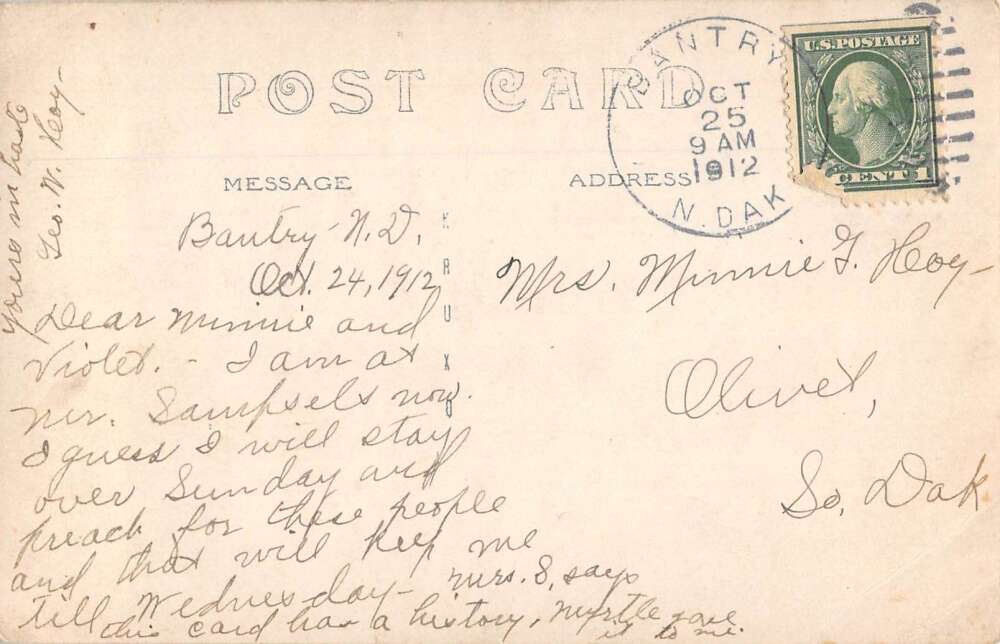 POST CARD
BANTRY
OCT
25
9 AM
1912
N. DAK
U.S. POSTAGE
CENT 1
MESSAGE
ADDRESS
KRUXO
Bantry N.D.
Oct. 24, 1912
Dear Minnie and
Violet. - I am at
Mr. Sampsels now.
I guess I will stay
over Sunday and
preach for these people
and that will keep me
till Wednesday - Mrs. S, says
this card has a history, Myrtle gave
it to me.
yours in haste
Geo. W. Hoy -
Mrs. Minnie G. Hoy -
Olivet,
So, Dak